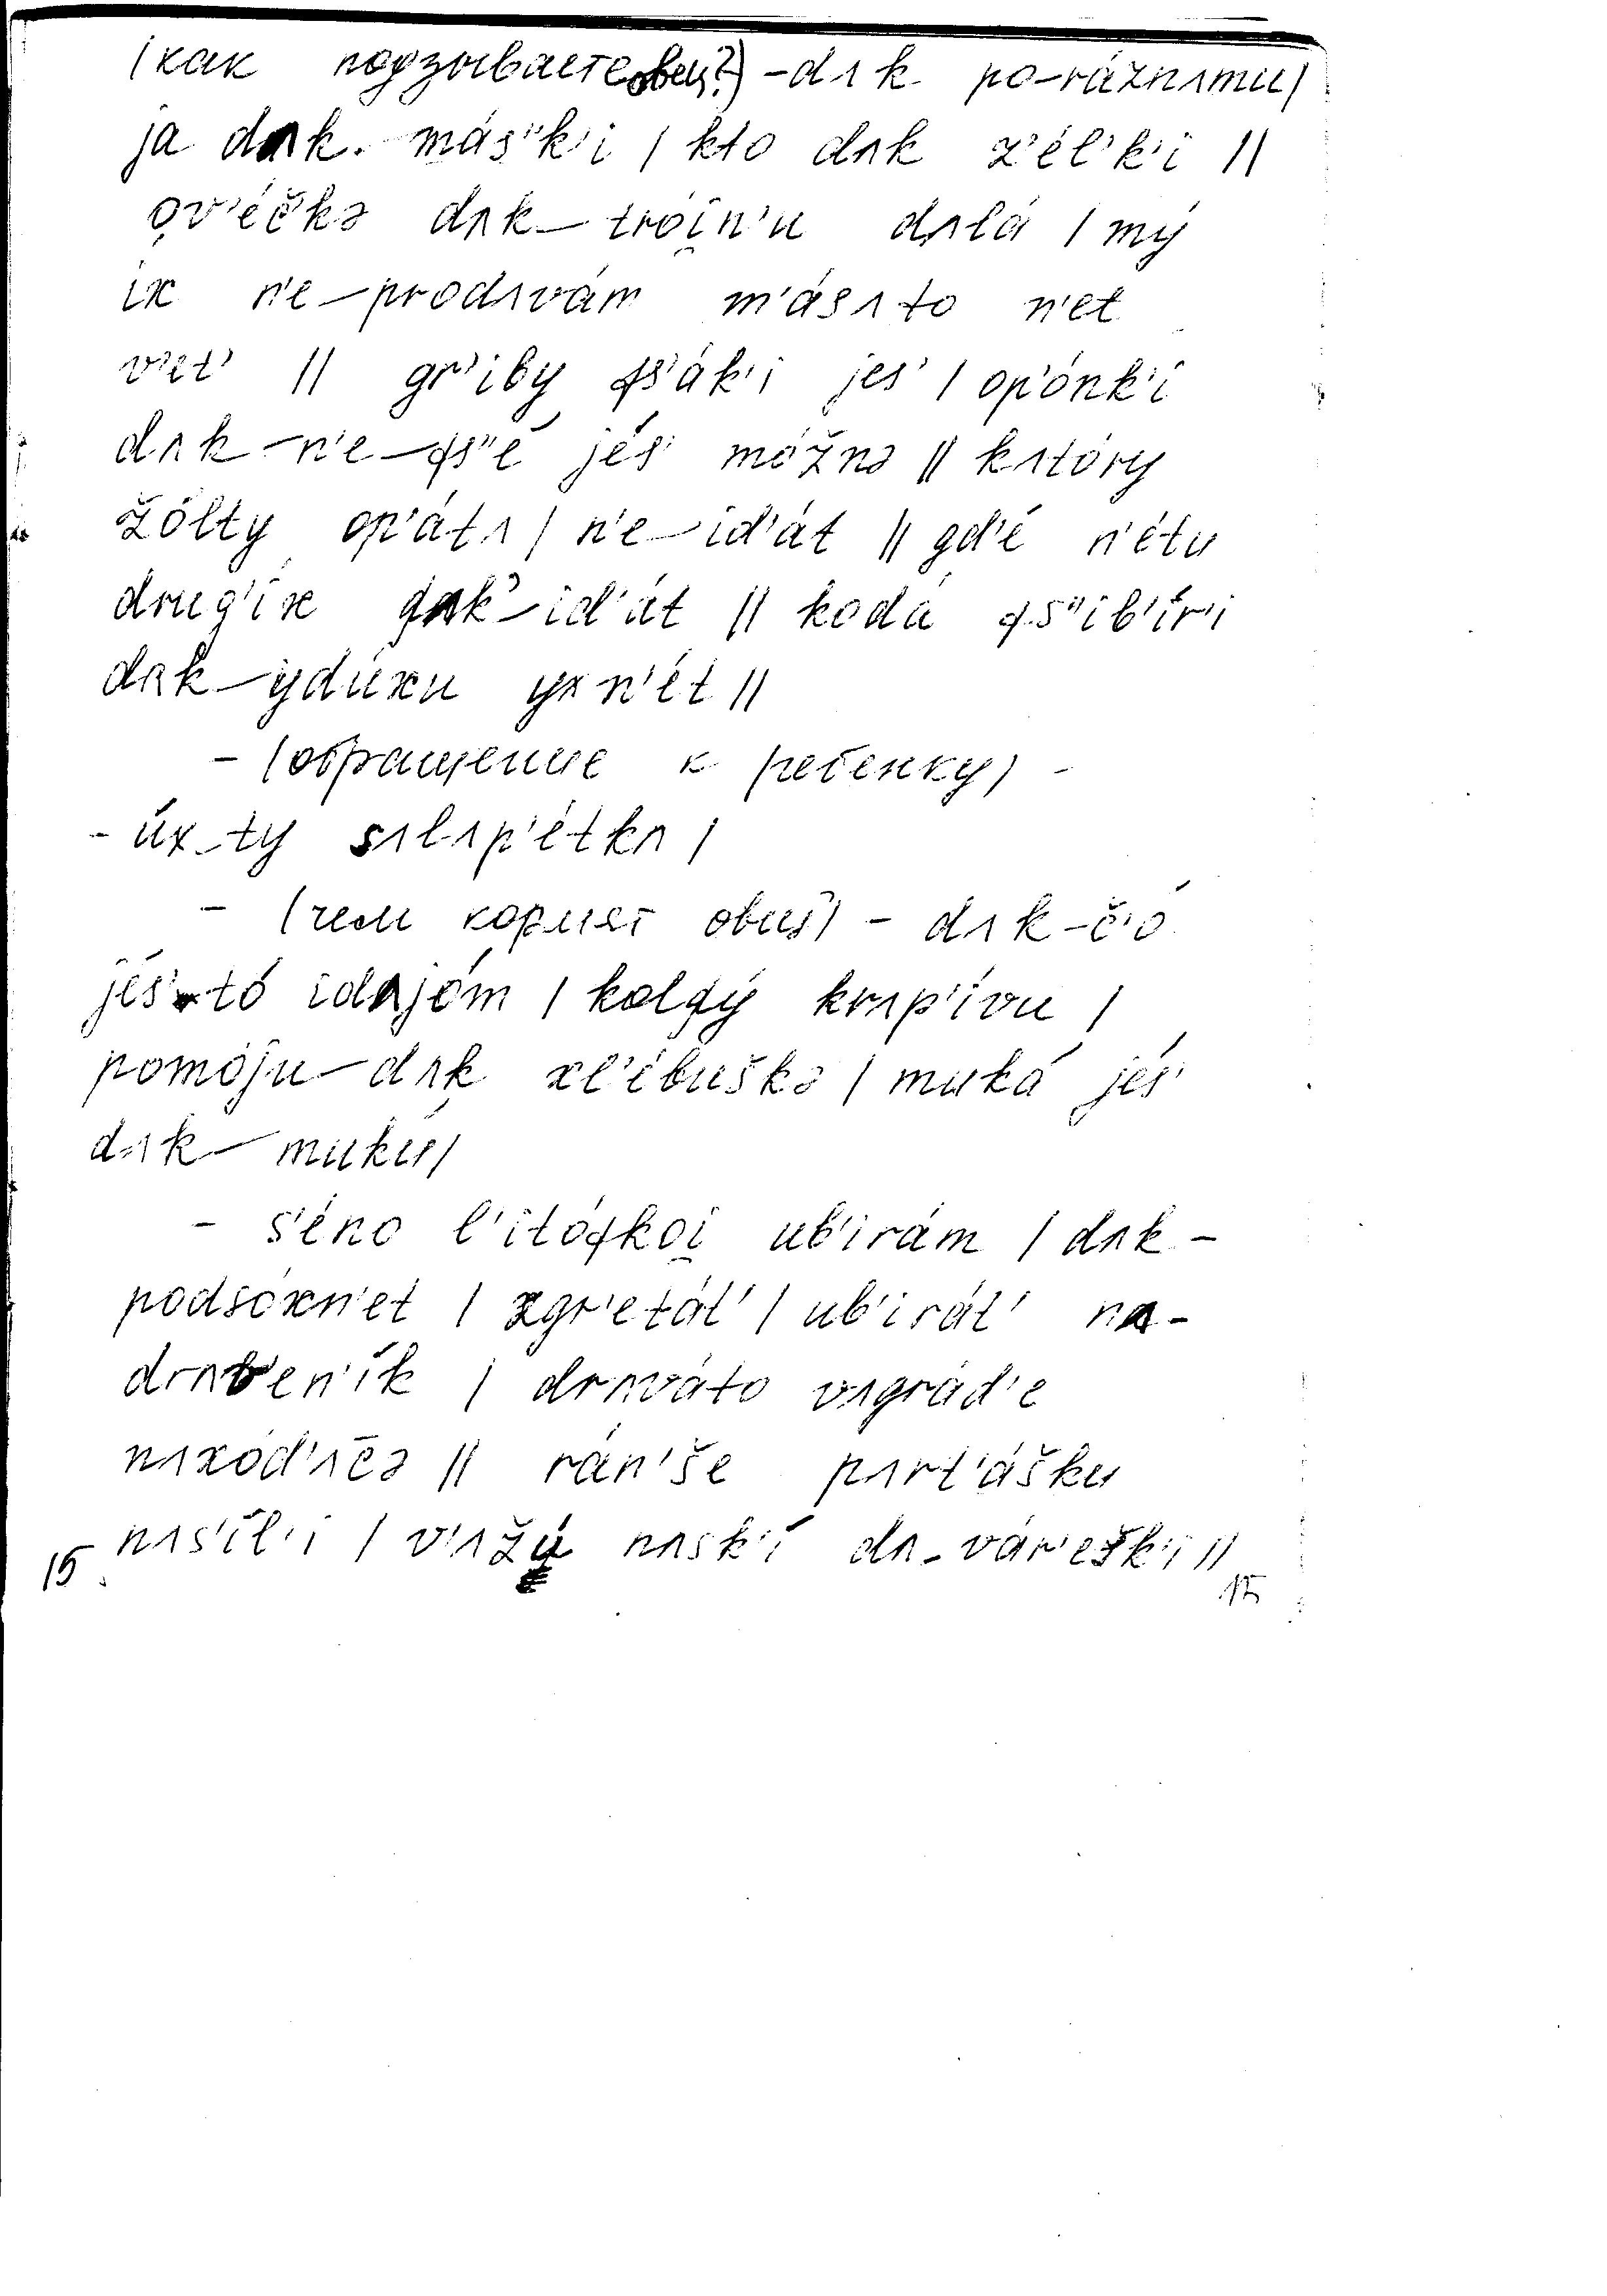 (как подзываете овец?) – dʌk po-ráznʌmu/
ja dʌk. más"k'i / kto dʌk z'él'k'i //
ov'éčkə dʌk – trói̯n'u dʌlá / mý
ix n'e – prodʌvám m'ásʌto n'et
v'et' // gr'iby fs'ák'i jes' / op'ónk'i
dʌk – n'e – fs"é jés' móžnə // kʌtóry
žólty op'átʌ / n'e – id'át // gd'é n'étu
drug'íx dʌk – id'át // kodá fs"ib'ír'i
dʌk – ydúxu yx n'ét //
– (обращение к ребенку) –
– úx – ty sʌlʌp'étkʌ /
– (чем кормят овец) – dʌk – č'ó
jés' – tó idʌjóm / koldý krʌp'ívu /
pomóju – dʌk xl'ébuškə / muká jés'
dʌk – mukú /
– s'éno l'itófkoi̯ ub'irám / dʌk –
podsóxn'et / zgr'etát' / ub'irát' na –
drʌv'en'ík / drʌváto vʌgrád'e
nʌxód'ʌčə // rán'še pʌrt'ášku
nʌs'íl'i / v'ʌžú nʌsk'í dʌ – vár'ešk'i //
15 15